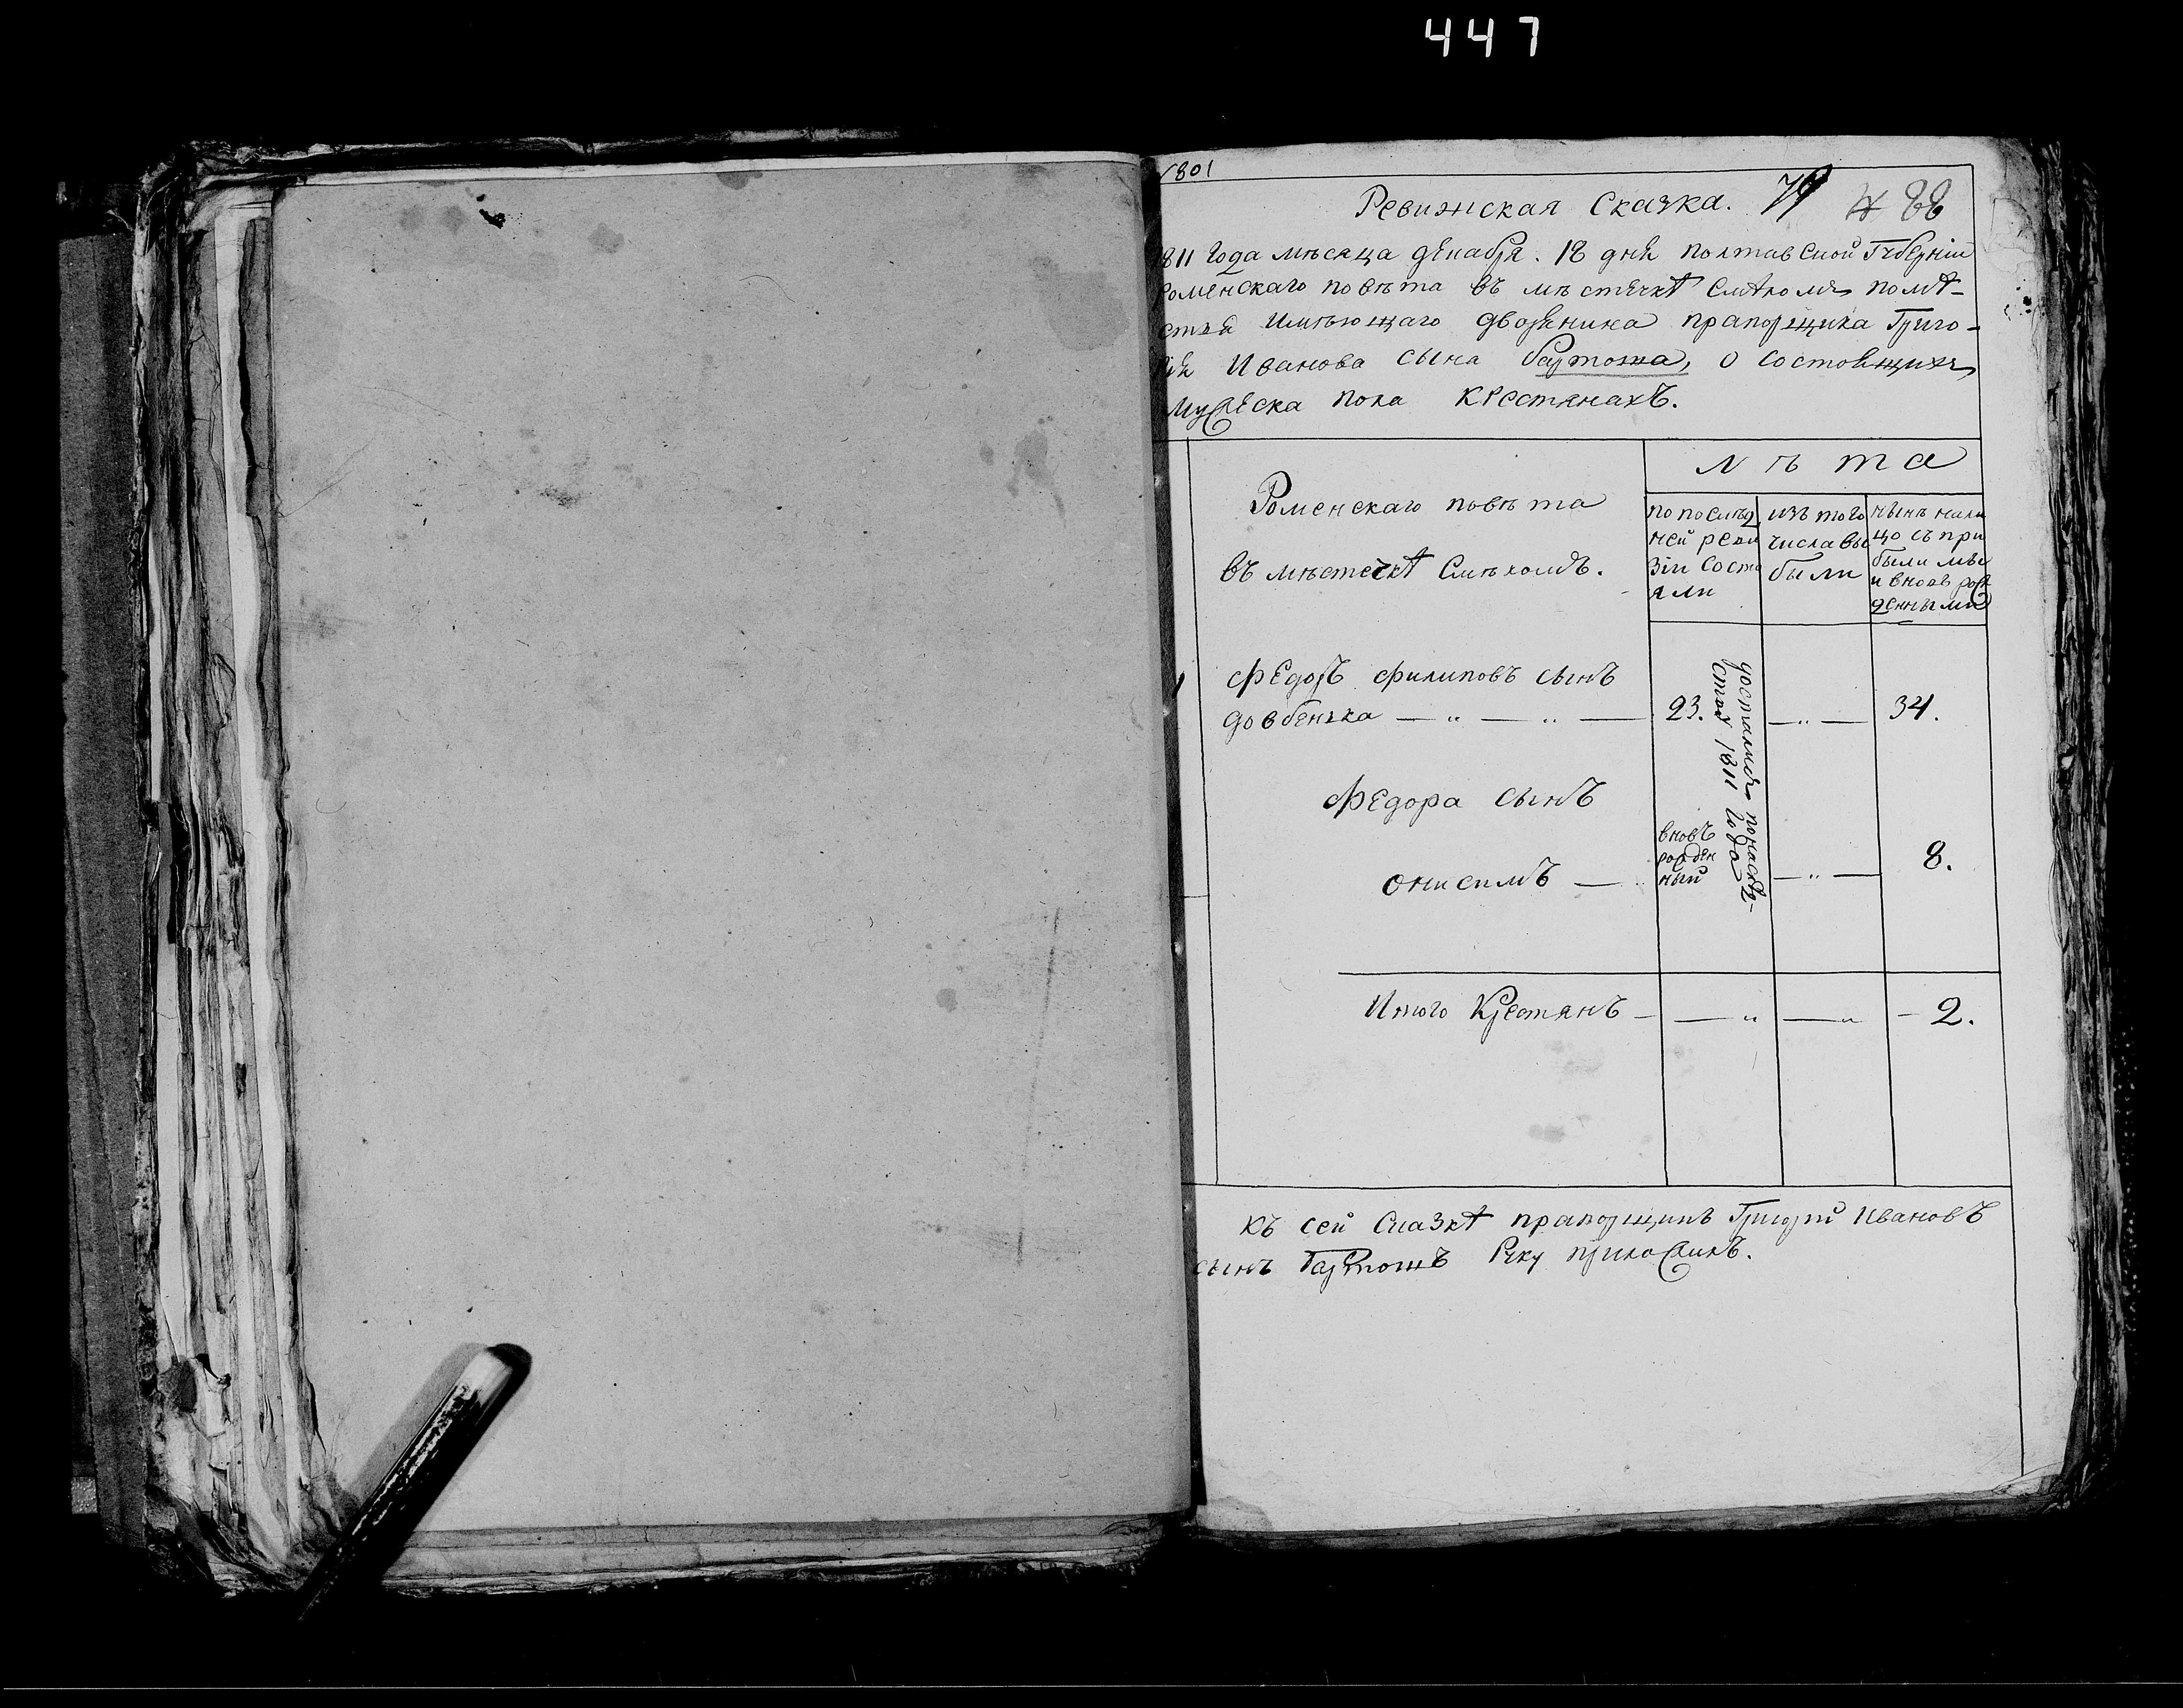 447
1801
Ревижская Сказка. 79 88
1811 года мѣсяца декабря. 18 дня полтавской Губерніи
Роменскаго повѣта въ мѣстечкѣ Смѣломъ помѣ-
стья имѣющаго дворянина прапорщика Григо-
рія Иванова сына Бартоша, о состоящихъ
мужеска пола крестянахъ.
лѣта
Роменскаго повѣта
въ мѣстечкѣ Смѣломъ.
по послѣд
ней реви
зіи состо
яли
изъ того
числа вы
были
нынѣ нали
цо съ при
былими
и вновь рож
денными
1
Федоръ Филиповъ сынъ
довбенька — „ — „ — 23. — „ — 34.
доставшійся по наслѣд-
ству 1811 года
Федора сынъ
Онисимъ —
вновь
рожден
ный
— „ — 8.
Итого Крестянъ — — „ — „ — 2.
Къ сей Сказкѣ прапорщикъ Григорій Ивановъ
сынъ Бартошъ Руку приложилъ.